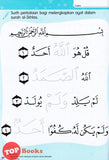 Surih perkataan bagi melengkapkan ayat dalam
surah al-Ikhlas.
بِسْمِ اللَّهِ الرَّحْمَٰنِ الرَّحِيمِ
قُلْ هُوَ اللَّهُ أَحَدٌ
اللَّهُ الصَّمَدُ
لَمْ يَلِدْ وَلَمْ يُولَدْ
وَلَمْ يَكُنْ لَهُ كُفُوًا